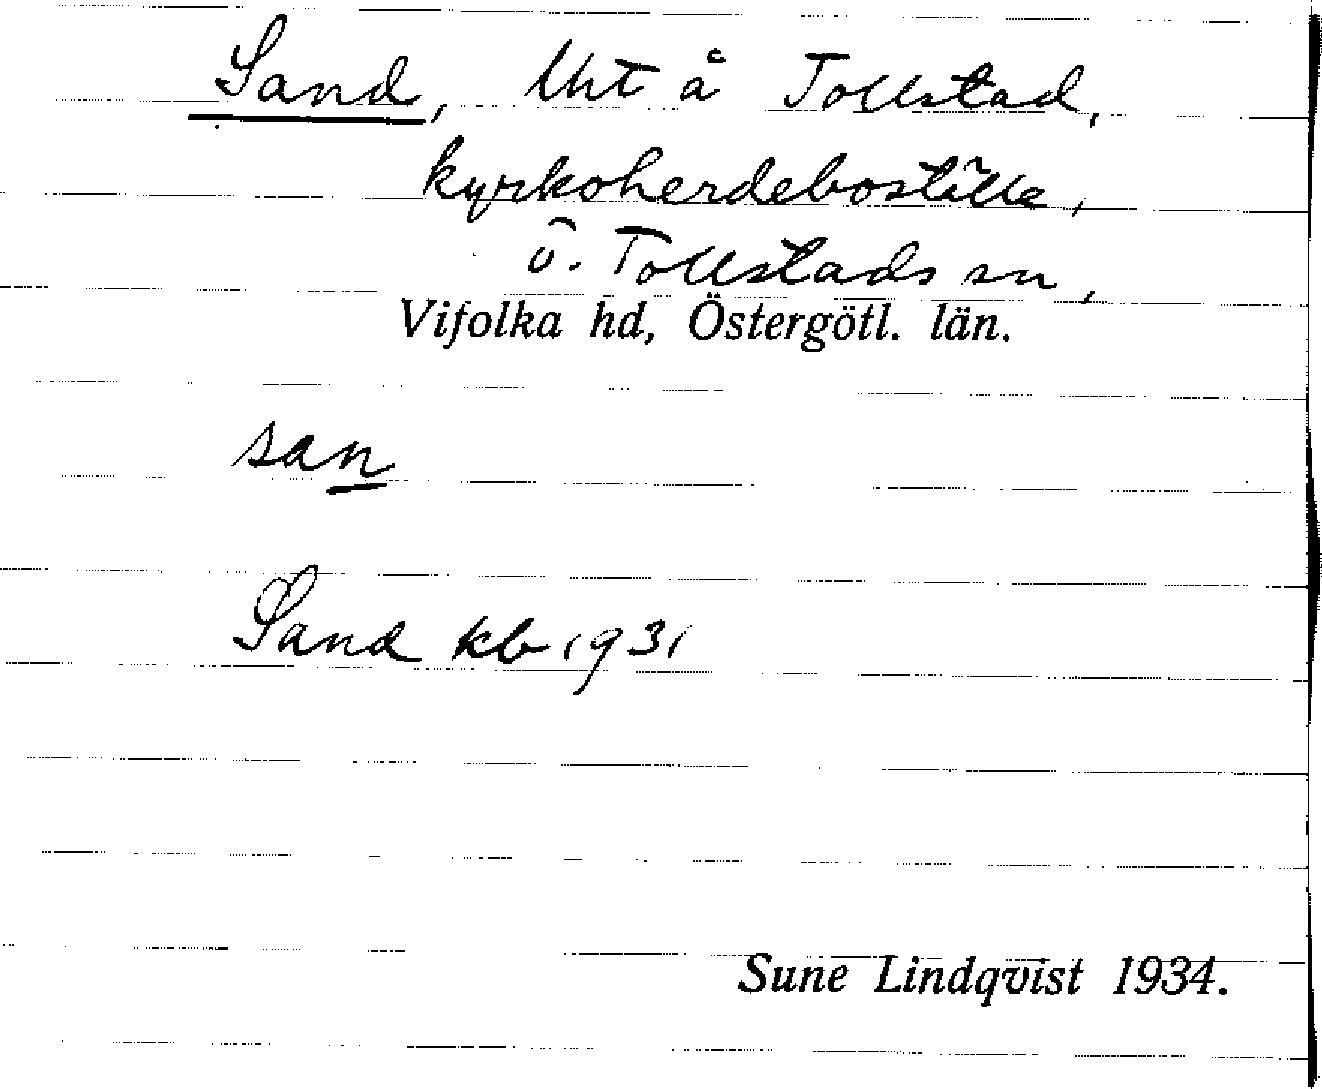 Sand, lht å Tollstad,
kyrkoherdeboställe,
ö. Tollstads sn,
Vifolka hd, Östergötl. län.
san
Sand kb 1931
Sune Lindqvist 1934.